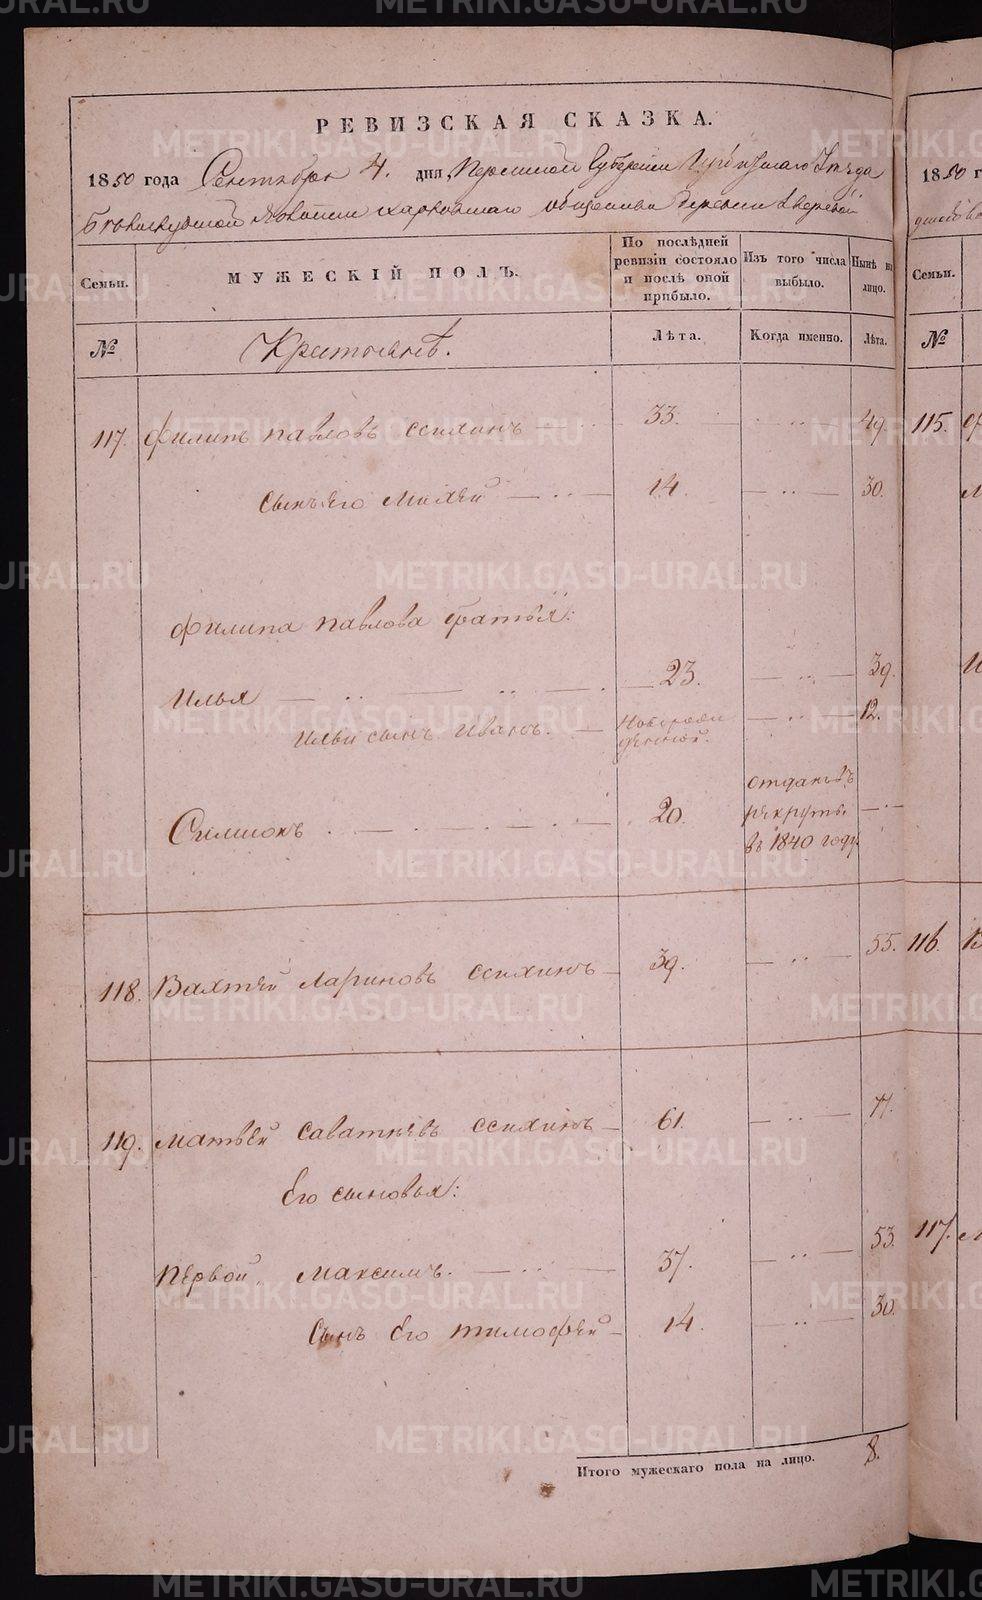 РЕВИЗСКАЯ СКАЗКА.
1850 года Сентября 4. дня, Пермской Губернии Ирбитскаго Уезда
волости харловскаго общества деревни
Семьи.
МУЖЕСКІЙ ПОЛЪ.
По послѣдней ревизіи состояло и послѣ оной прибыло.
Изъ того числа выбыло.
Нынѣ на лицо.
№
Крестьянъ.
Лѣта.
Когда именно.
Лѣта.
117. Филипъ павловъ 33. 49.
сынъ его Михей 14. 30.
Филипа павлова братья:
Илья 23. 39.
Ильи сынъ Иванъ. новорожденной. 12.
Симионъ 20. отданъ въ рекруты въ 1840 году
118. Вахтей Лариновъ 39. 55.
119. Матвей саватеевъ 61. 77.
Его сыновья:
Первой. Максимъ. 37. 53.
Сынъ его тимофей 14. 30.
Итого мужескаго пола на лицо. 8.
1850 г
Семьи.
№
115.
116.
117.
METRIKI.GASO-URAL.RU